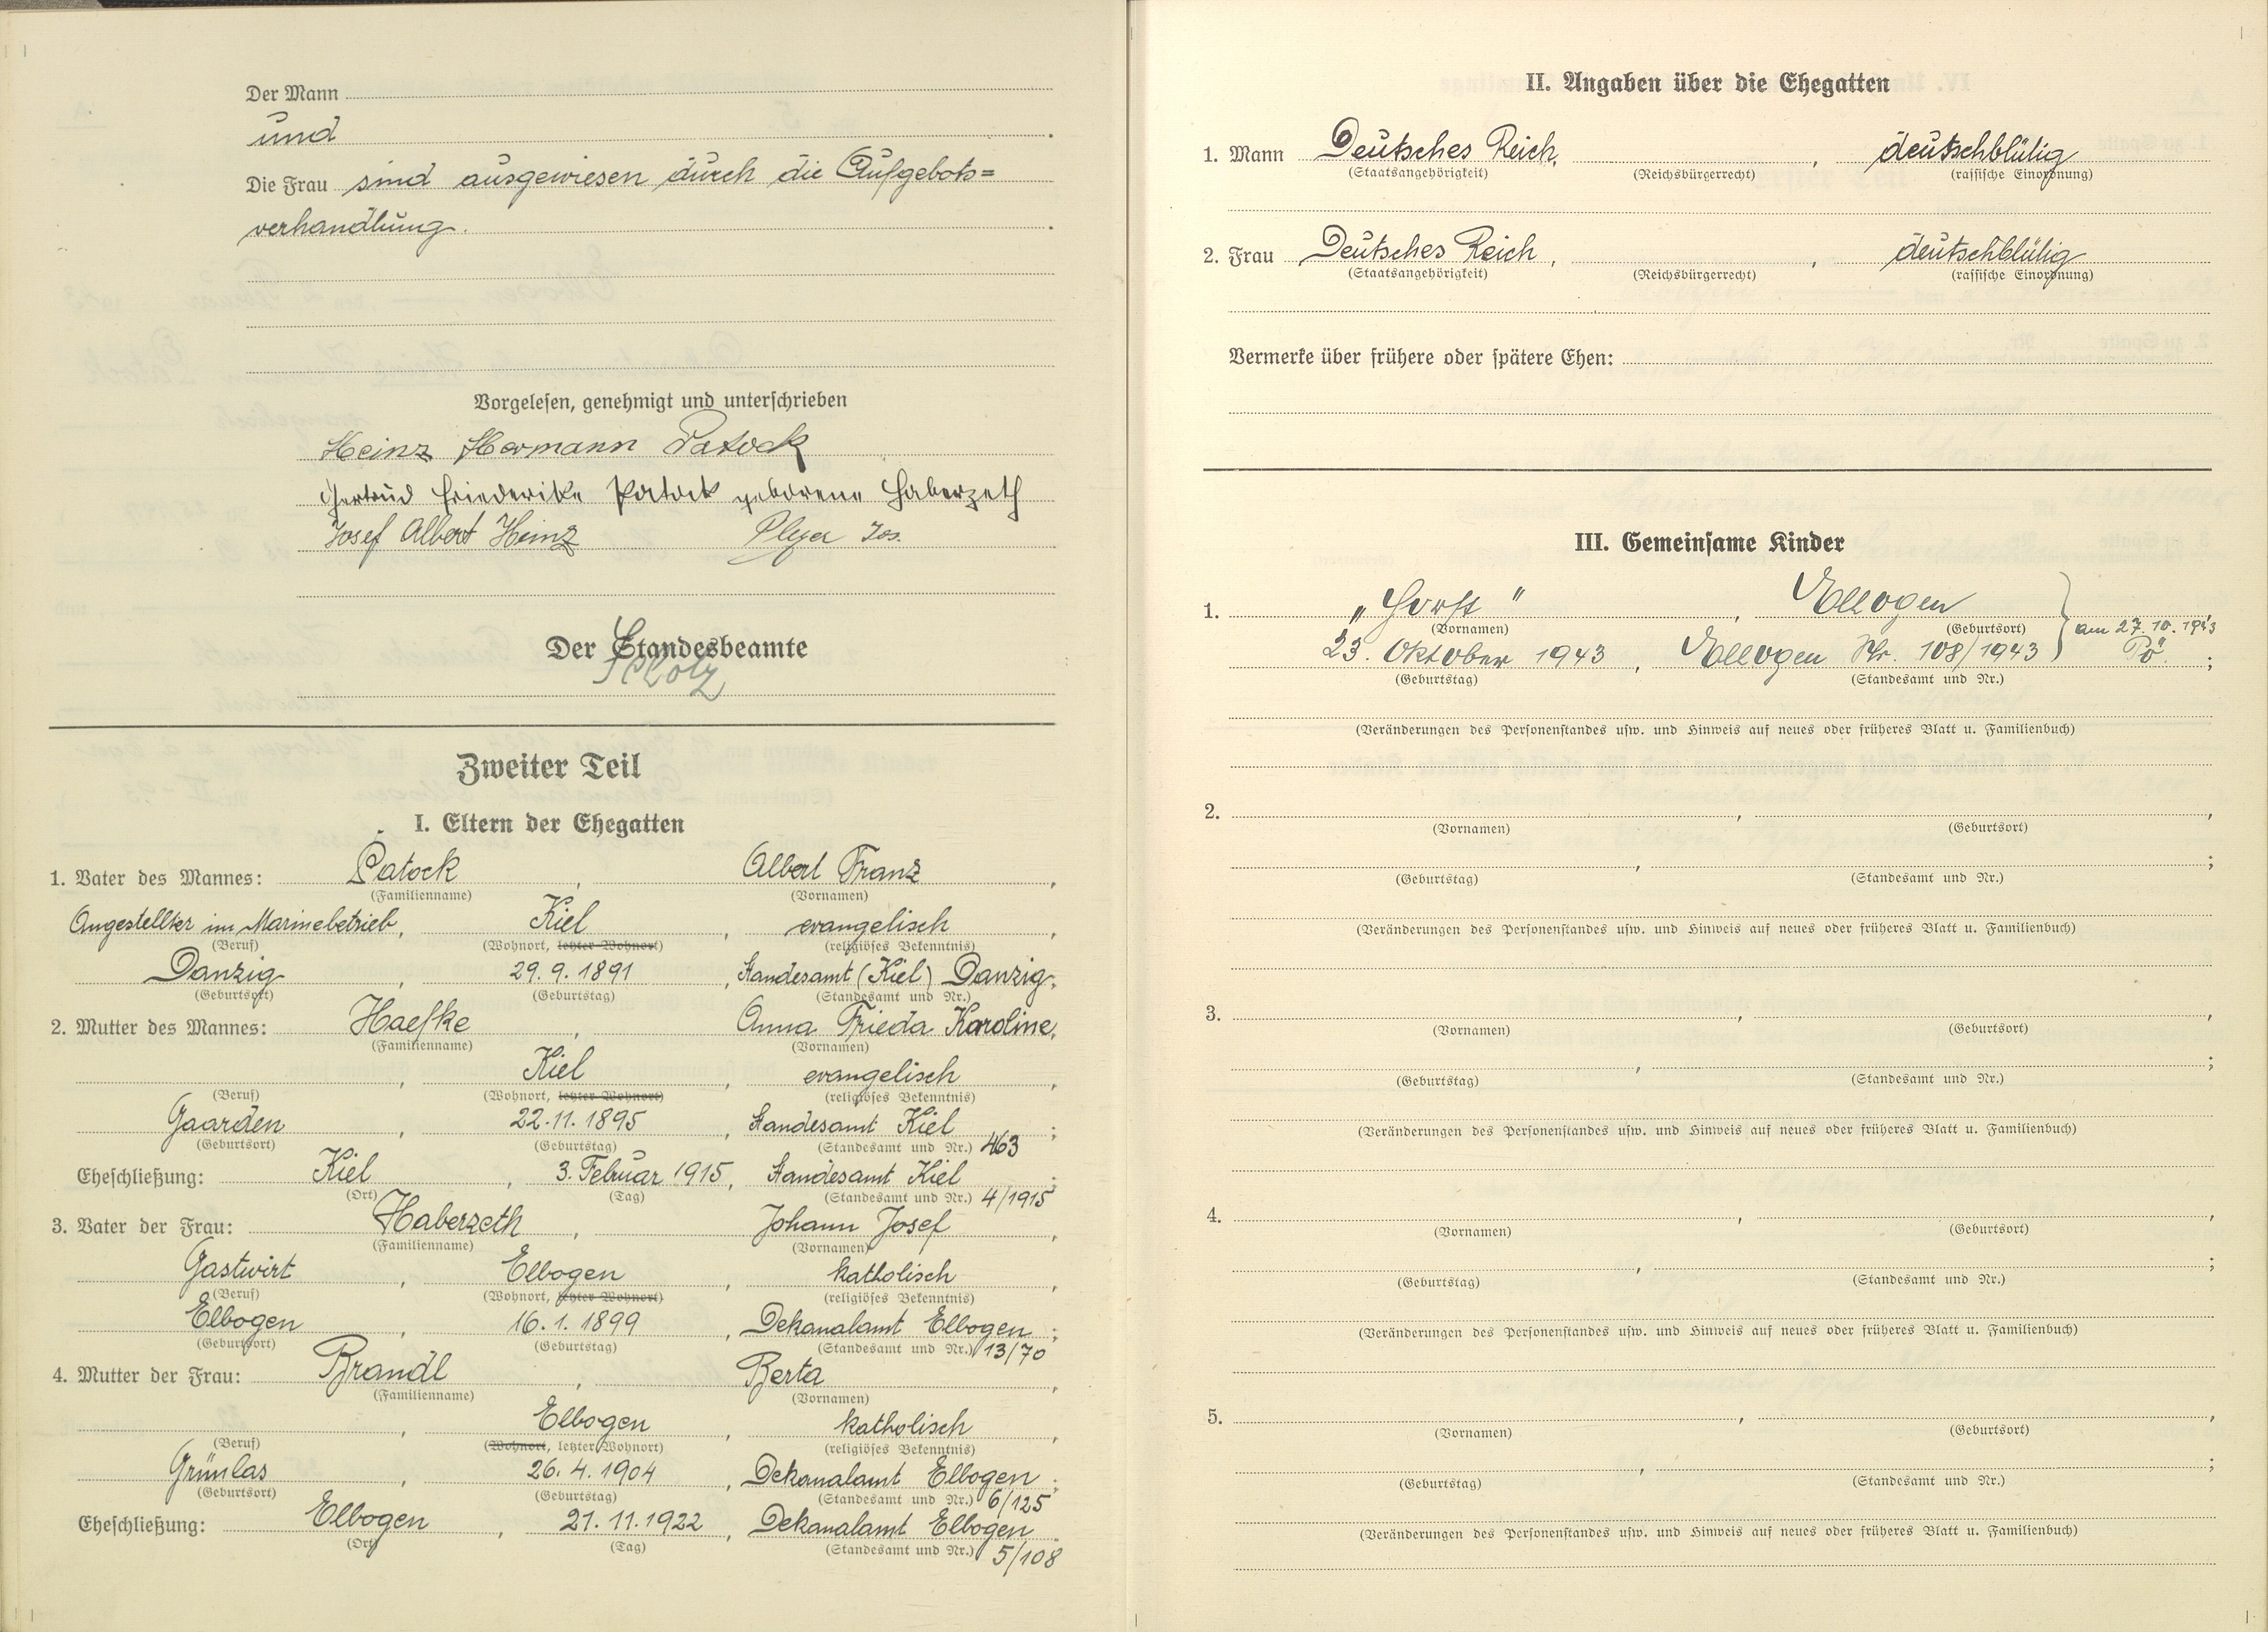 Der Mann
und
Die Frau sind ausgewiesen durch die Aufgebots=
verhandlung.
Vorgelesen, genehmigt und unterschrieben
Heinz Hermann Patock
Gertrud Friederike Patock geborene Haberzeth
Josef Albert Heinz Pleyer Jos.
Der Standesbeamte
Scholz
Zweiter Teil
I. Eltern der Ehegatten
1. Vater des Mannes: Patock, Albert Franz,
(Familienname) (Vornamen)
Angestellter im Marinebetrieb, Kiel, evangelisch,
(Beruf) (Wohnort, letzter Wohnort) (religiöses Bekenntnis)
Danzig, 29.9.1891, Standesamt (Kiel) Danzig;
(Geburtsort) (Geburtstag) (Standesamt und Nr.)
2. Mutter des Mannes: Haefke, Anna Frieda Karoline,
(Familienname) (Vornamen)
Kiel, evangelisch,
(Beruf) (Wohnort, letzter Wohnort) (religiöses Bekenntnis)
Gaarden, 22.11.1895, Standesamt Kiel;
(Geburtsort) (Geburtstag) (Standesamt und Nr.) 463
Eheschließung: Kiel, 3. Februar 1915, Standesamt Kiel;
(Ort) (Tag) (Standesamt und Nr.) 4/1915
3. Vater der Frau: Haberzeth, Johann Josef,
(Familienname) (Vornamen)
Gastwirt, Elbogen, katholisch,
(Beruf) (Wohnort, letzter Wohnort) (religiöses Bekenntnis)
Elbogen, 16.1.1899, Dekanalamt Elbogen;
(Geburtsort) (Geburtstag) (Standesamt und Nr.) 13/70
4. Mutter der Frau: Brandl, Berta,
(Familienname) (Vornamen)
Elbogen, katholisch,
(Beruf) (Wohnort, letzter Wohnort) (religiöses Bekenntnis)
Grünlas, 26.4.1904, Dekanalamt Elbogen;
(Geburtsort) (Geburtstag) (Standesamt und Nr.) 6/125
Eheschließung: Elbogen, 21.11.1922, Dekanalamt Elbogen
(Ort) (Tag) (Standesamt und Nr.) 5/108
II. Angaben über die Ehegatten
1. Mann Deutsches Reich, , deutschblütig
(Staatsangehörigkeit) (Reichsbürgerrecht) (rassische Einordnung)
2. Frau Deutsches Reich, , deutschblütig
(Staatsangehörigkeit) (Reichsbürgerrecht) (rassische Einordnung)
Vermerke über frühere oder spätere Ehen:
III. Gemeinsame Kinder
1. „Horst", Ellogen
(Vornamen) (Geburtsort) am 27.10.1943
23. Oktober 1943, Ellogen Nr. 108/1943 Pö. ;
(Geburtstag) (Standesamt und Nr.)
(Veränderungen des Personenstandes usw. und Hinweis auf neues oder früheres Blatt u. Familienbuch)
2. , ,
(Vornamen) (Geburtsort)
, ;
(Geburtstag) (Standesamt und Nr.)
(Veränderungen des Personenstandes usw. und Hinweis auf neues oder früheres Blatt u. Familienbuch)
3. , ,
(Vornamen) (Geburtsort)
, ;
(Geburtstag) (Standesamt und Nr.)
(Veränderungen des Personenstandes usw. und Hinweis auf neues oder früheres Blatt u. Familienbuch)
4. , ,
(Vornamen) (Geburtsort)
, ;
(Geburtstag) (Standesamt und Nr.)
(Veränderungen des Personenstandes usw. und Hinweis auf neues oder früheres Blatt u. Familienbuch)
5. , ,
(Vornamen) (Geburtsort)
, ;
(Geburtstag) (Standesamt und Nr.)
(Veränderungen des Personenstandes usw. und Hinweis auf neues oder früheres Blatt u. Familienbuch)